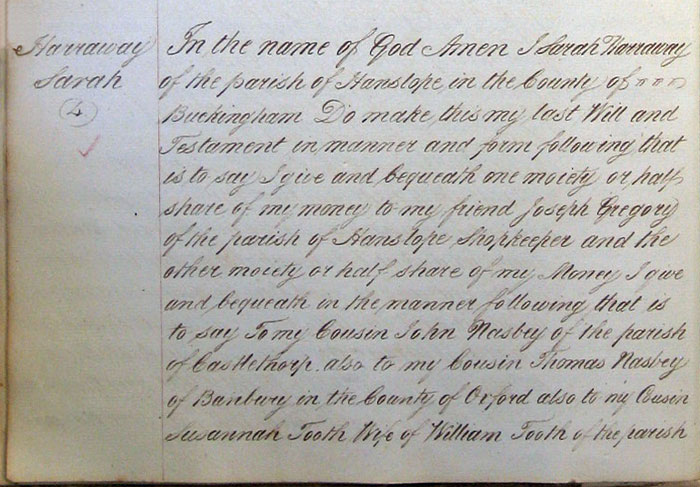 Harraway
Sarah
4
In the name of God Amen I Sarah Harraway
of the parish of Hanslope in the County of
Buckingham Do make this my last Will and
Testament in manner and form following that
is to say I give and bequeath one moiety or half
share of my money to my friend Joseph Gregory
of the parish of Hanslope Shopkeeper and the
other moiety or half share of my Money I give
and bequeath in the manner following that is
to say To my Cousin John Nasbey of the parish
of Castlethorp. also to my Cousin Thomas Nasbey
of Banbury in the County of Oxford also to my Cousin
Susannah Tooth Wife of William Tooth of the parish